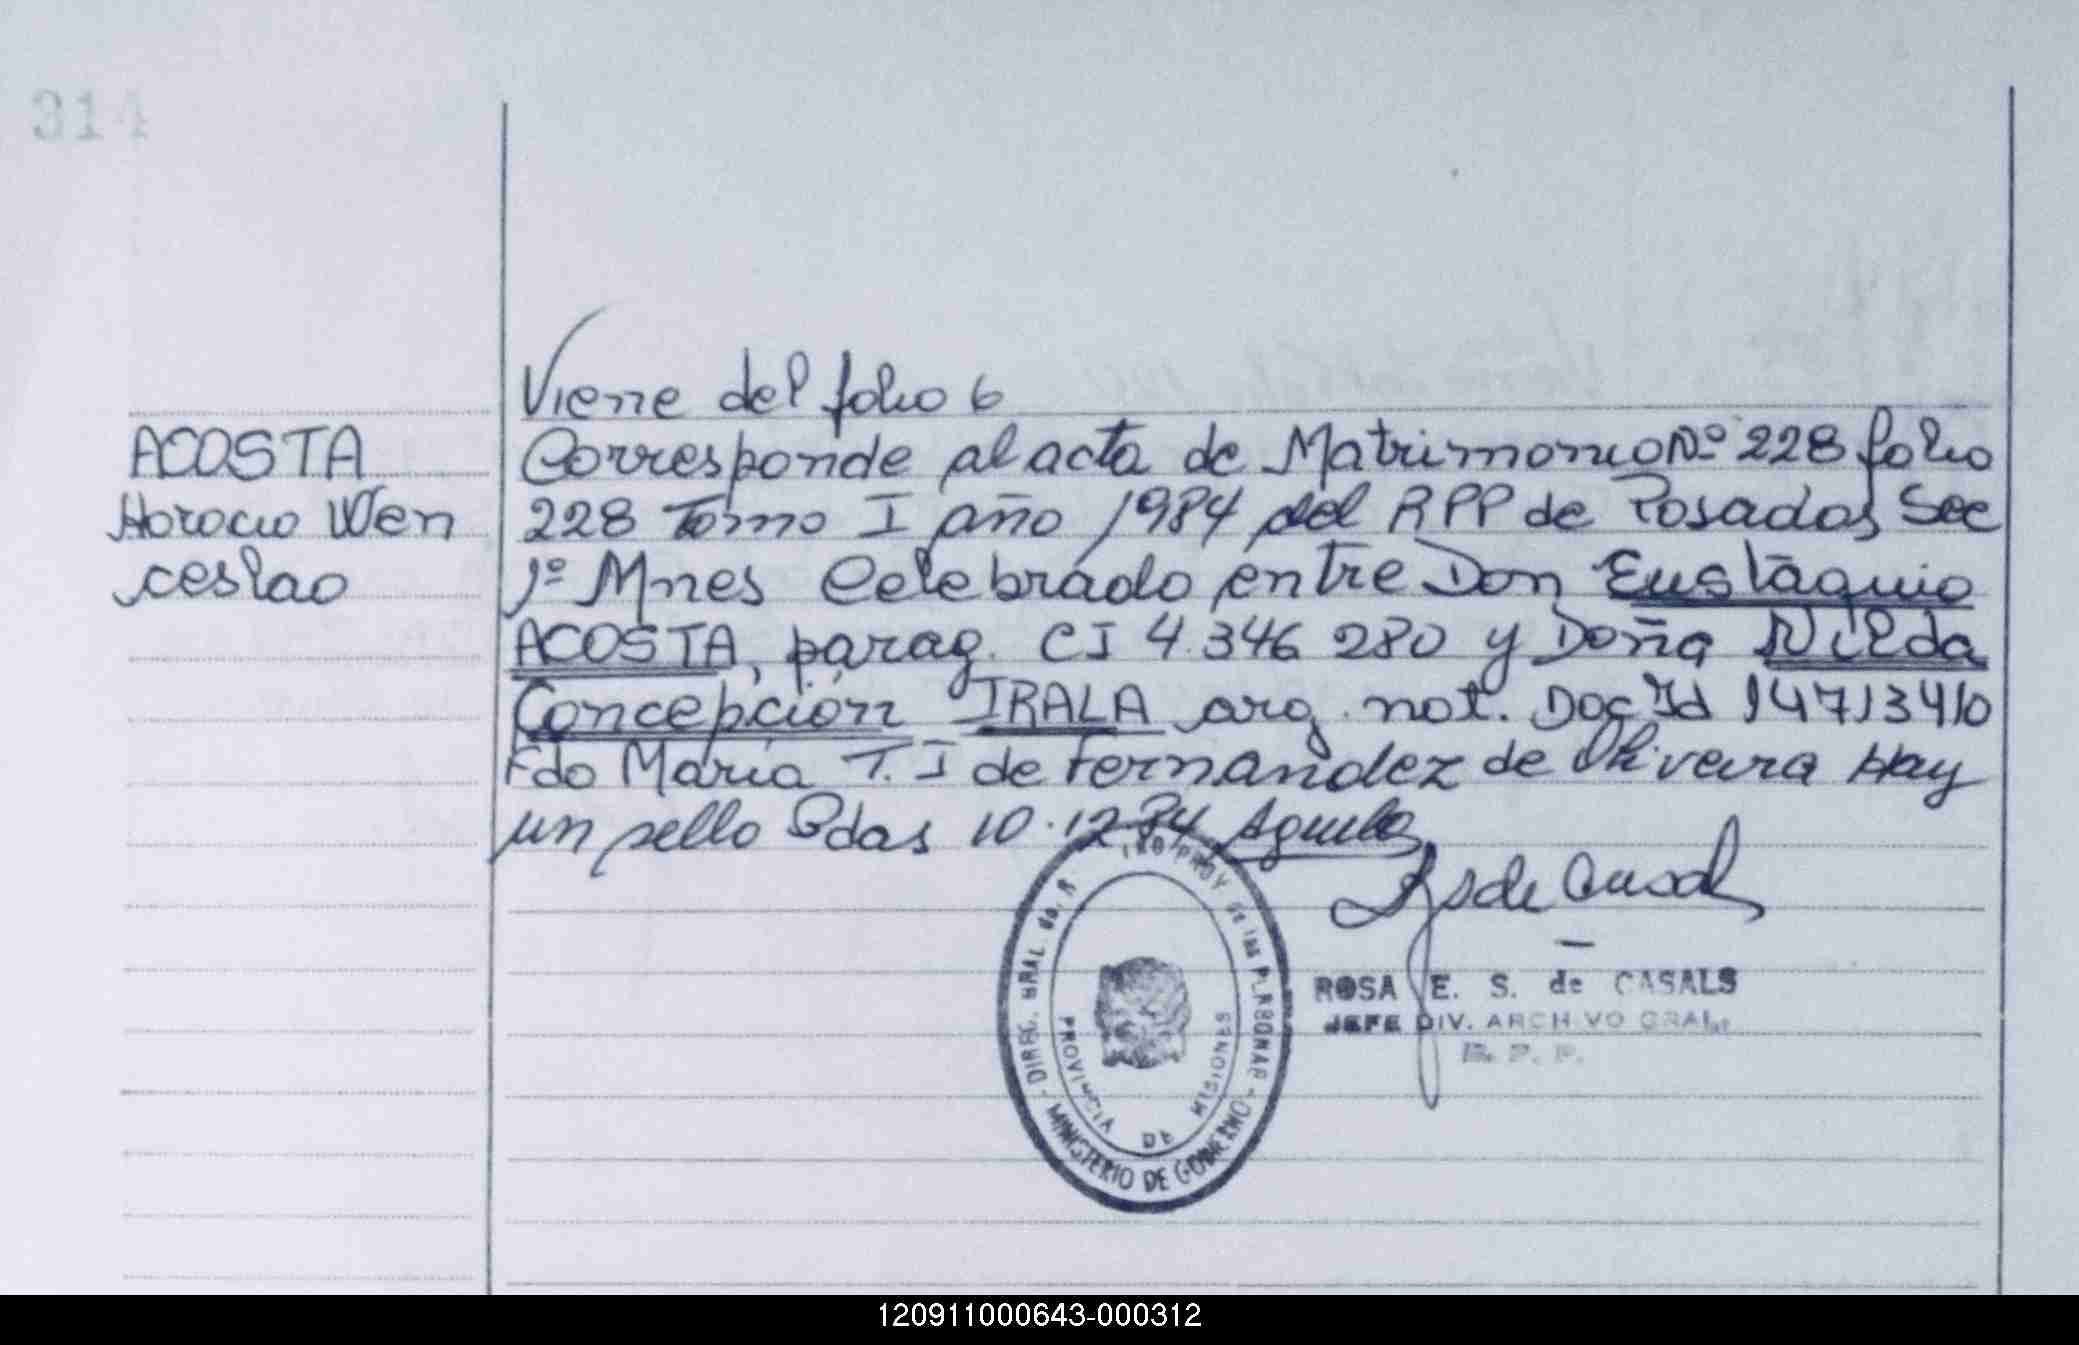 314
Viene del folio 6
ACOSTA
Horacio Wen
ceslao
Corresponde al acta de Matrimonio Nº 228 folio
228 Tomo I año 1984 del RPP de Posadas Sec
1º Mnes Celebrado entre Don Eustaquio
ACOSTA, parag. CI 4.346 280 y Doña Nilda
Concepción IRALA arg. nat. Doc Id
Fdo María T. I de Fernandez de Oliveira Hay
un sello Pdas 10.12.84
ROSA E. S. de CASALS
JEFE DIV. ARCHIVO GRAL
R. P. P.
DIREC. GRAL. de. R PROV de las PERSONAS
MINISTERIO DE GOBIERNO
PROVINCIA DE MISIONES
120911000643-000312